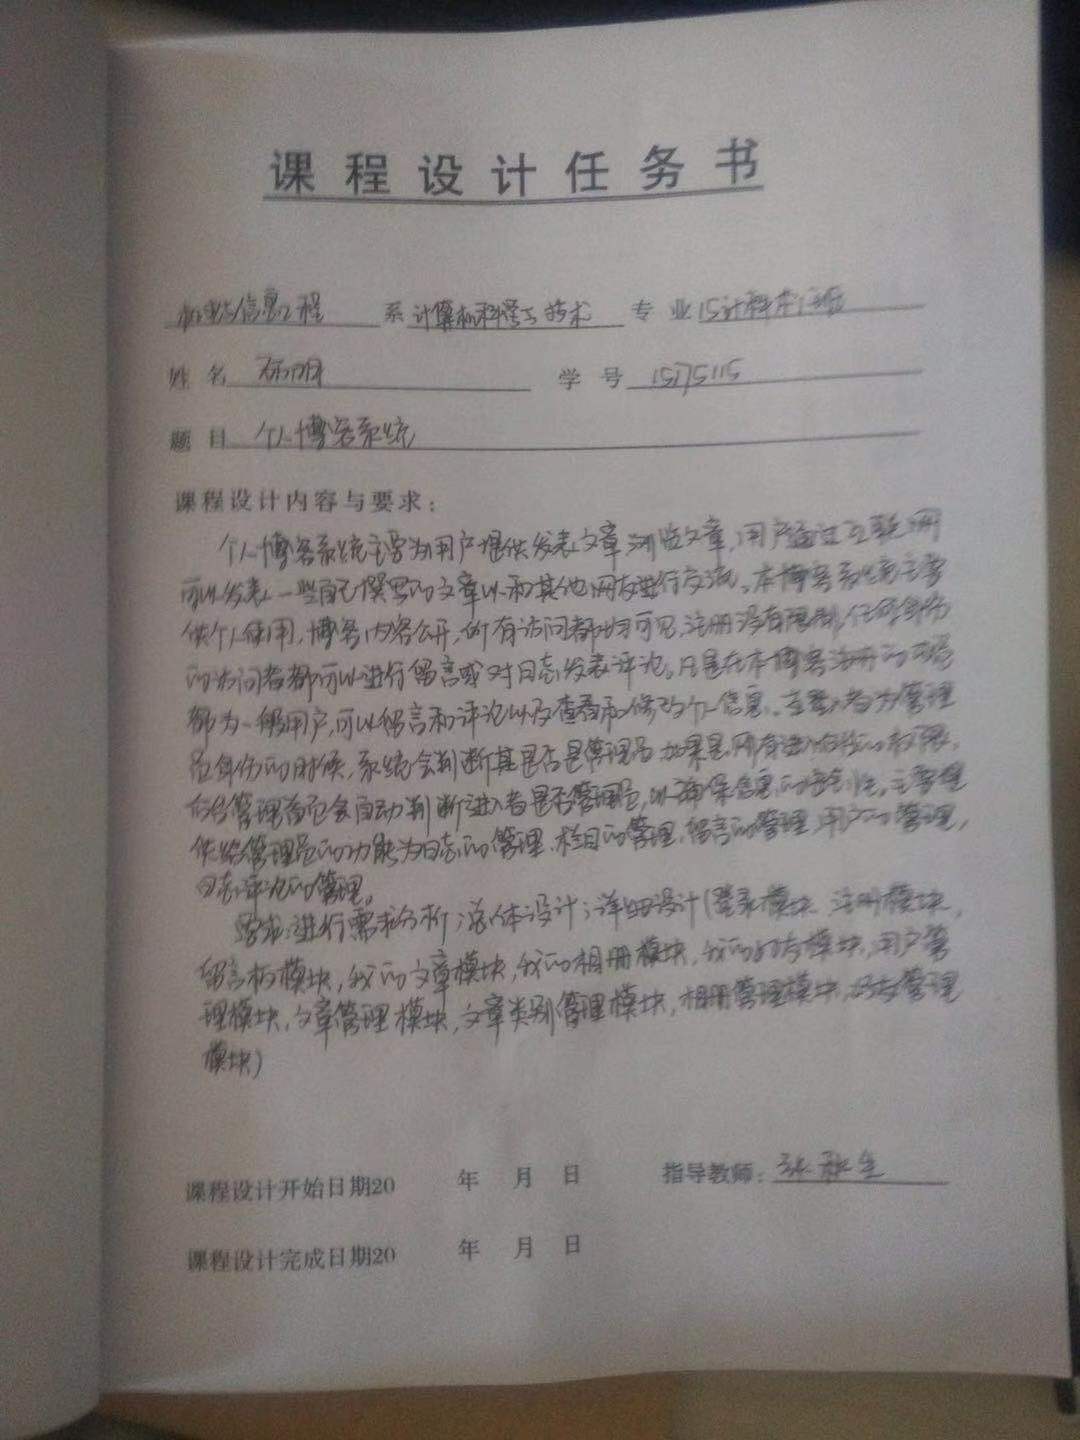 课程设计任务书
信息工程 系 计算机科学与技术 专业 15计科本1班
姓名 学号 15175115
题目 个人博客系统
课程设计内容与要求：
个人博客系统主要为用户提供发表文章浏览文章，用户通过互联网
可以发表一些自己撰写的文章以和其他网友进行交流。本博客系统主要
供个人使用，博客内容公开，所有访问都均可见，注册没有限制，任何身份
的访问者都可以进行留言或对日志发表评论。凡是在本博客注册的
都为一般用户，可以留言和评论以及查看和修改个人信息。登录者为管理
员身份的时候，系统会判断其是否是管理员如果是，则有进入后台的权限，
后台管理页面会自动判断进入者是否管理员，以确保信息的安全性。主要提
供给管理员的功能为日志的管理、栏目的管理，留言的管理，用户的管理，
日志评论的管理。
要求：进行需求分析；总体设计；详细设计（登录模块，注册模块，
留言板模块，我的文章模块，我的相册模块，我的好友模块，用户管
理模块，文章管理模块，文章类别管理模块，相册管理模块，好友管理
模块）
课程设计开始日期20 年 月 日 指导教师：张秋生
课程设计完成日期20 年 月 日